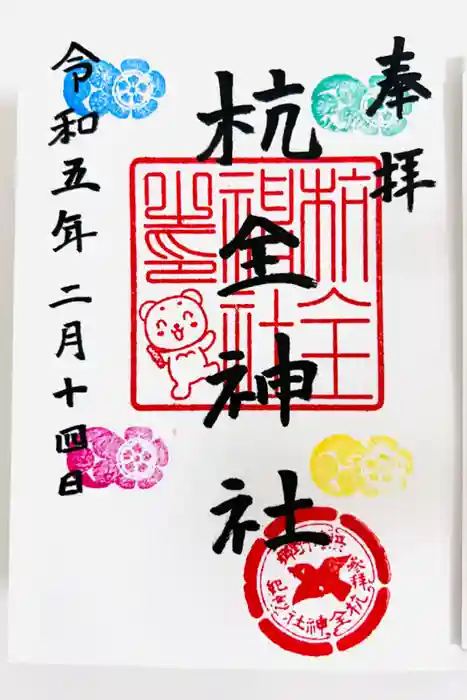 奉拝
杭全神社
令和五年二月十四日
杭全
神社
参拝
杭全神社